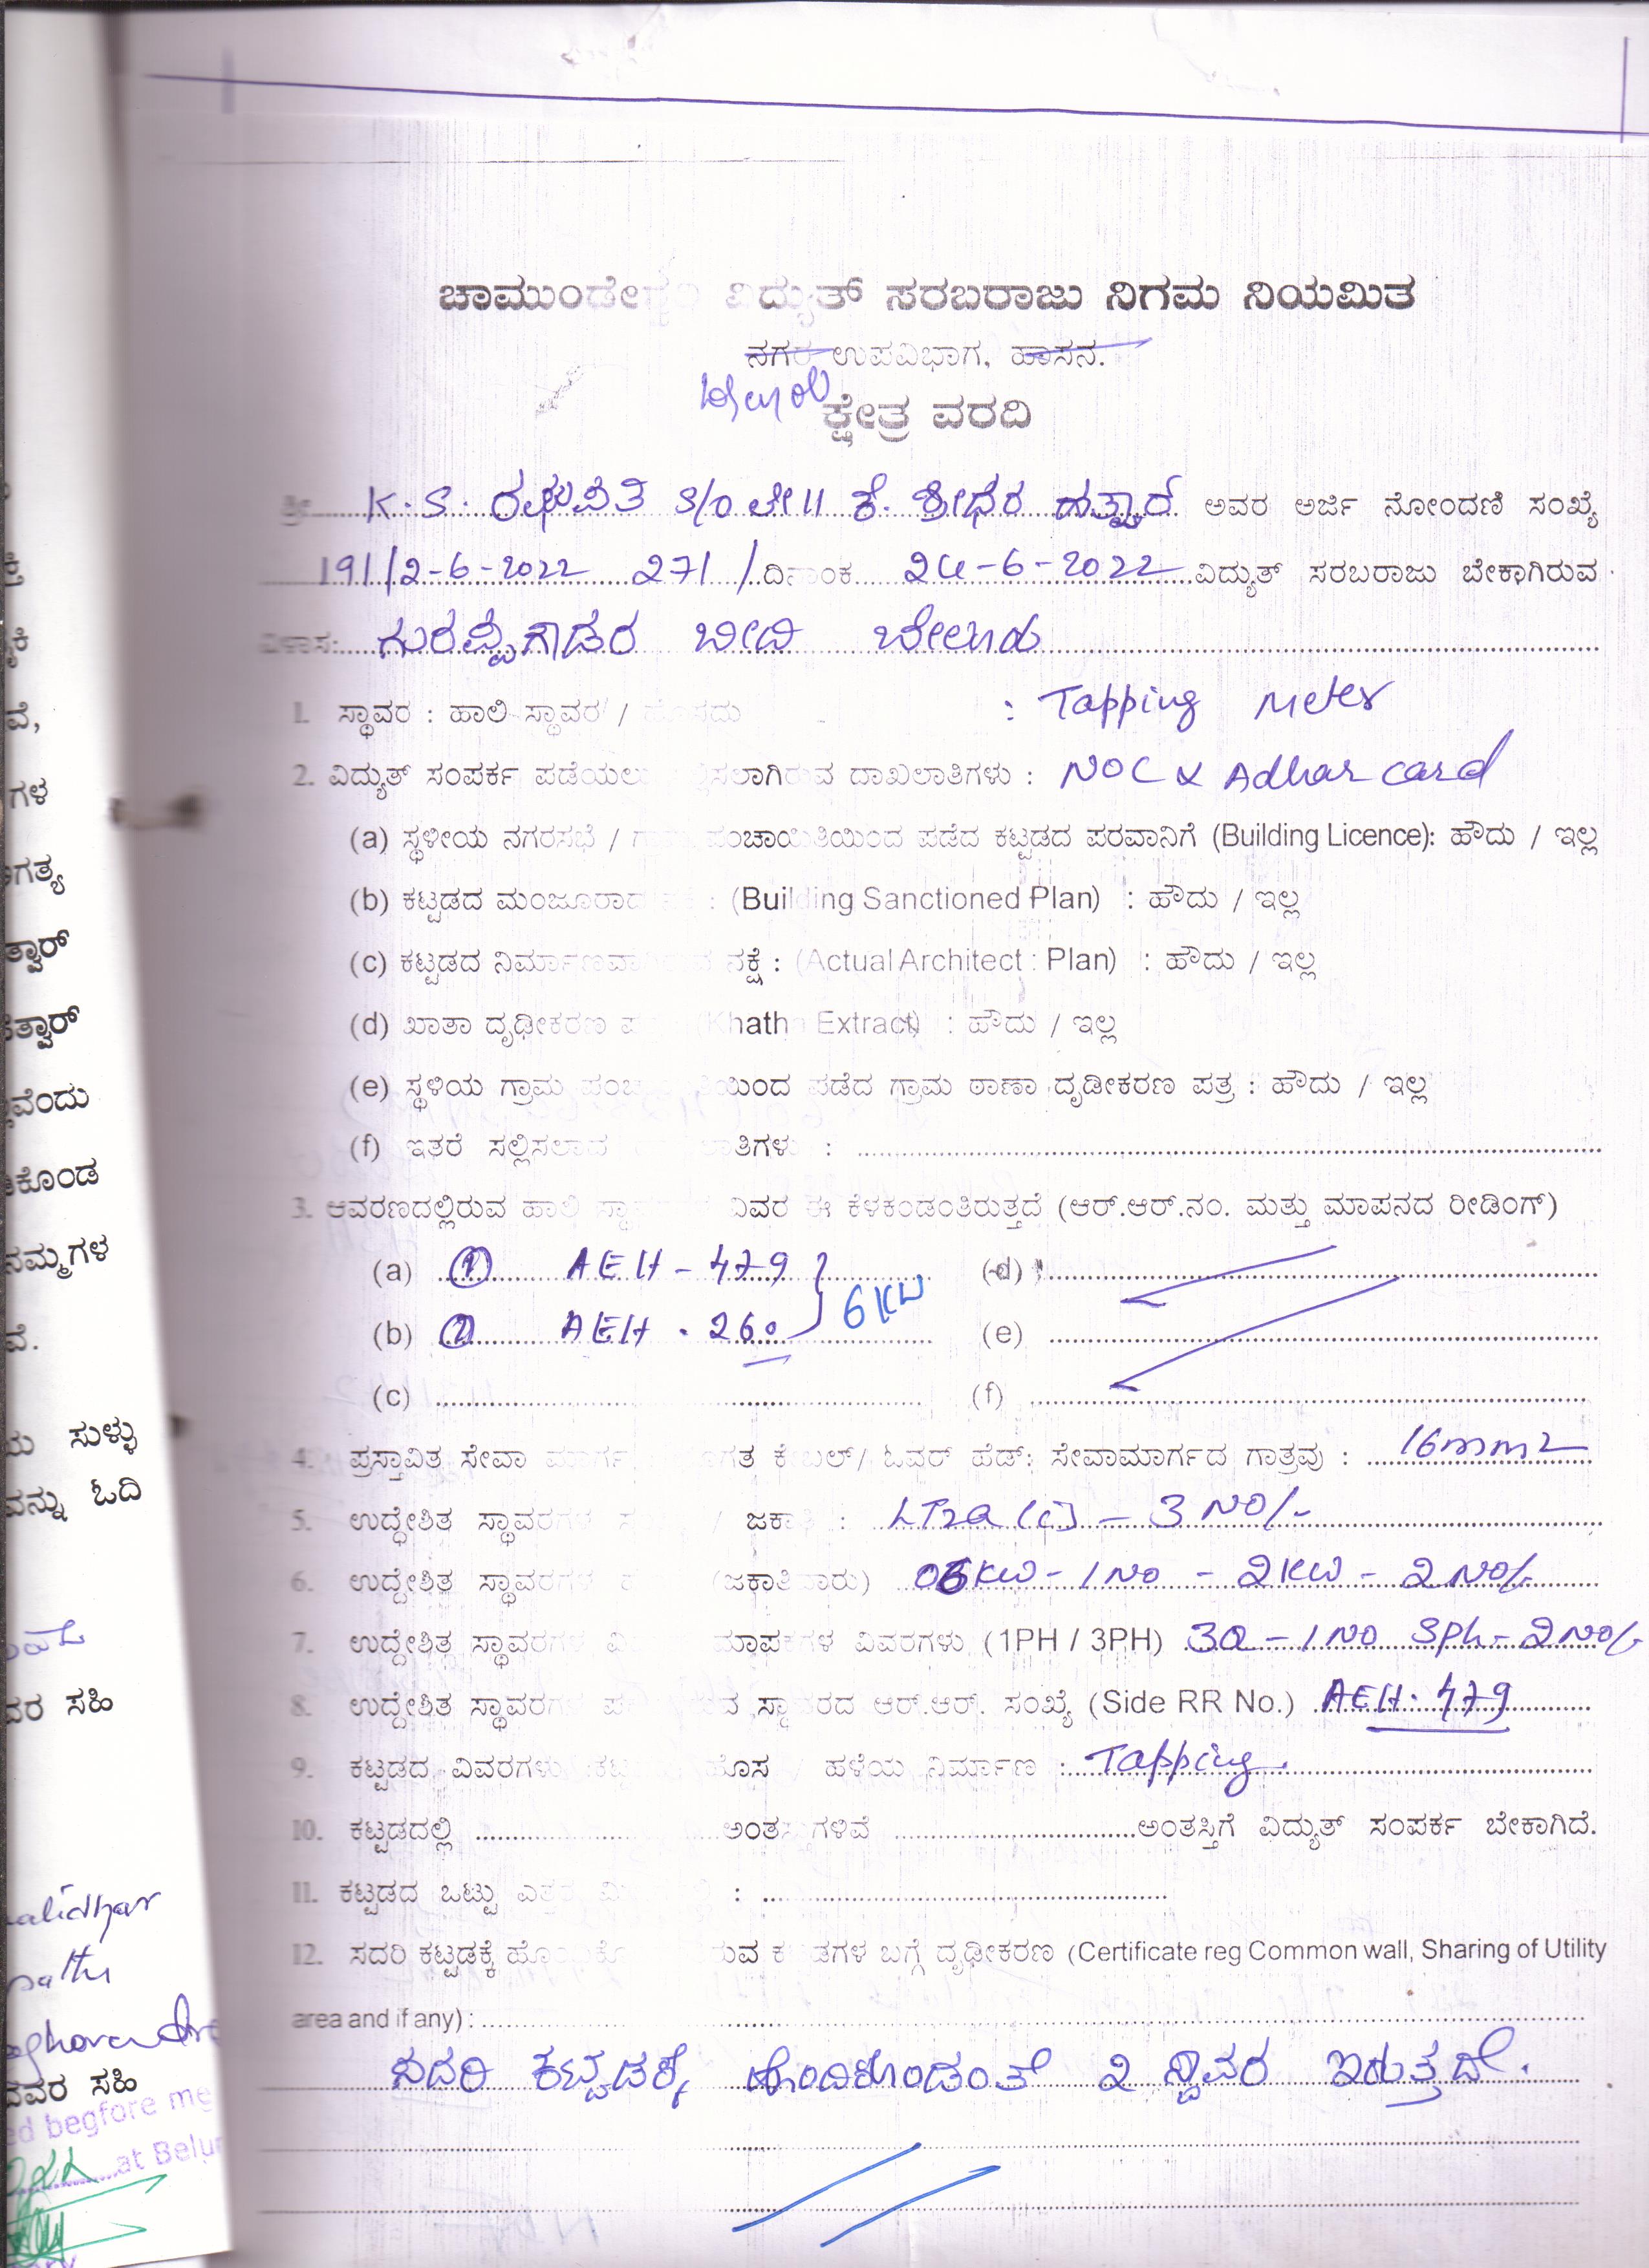 ಚಾಮುಂಡೇಶ್ವರಿ ವಿದ್ಯುತ್ ಸರಬರಾಜು ನಿಗಮ ನಿಯಮಿತ
ನಗರ ಉಪವಿಭಾಗ, ಹಾಸನ.
ಬೇಲೂರು
ಕ್ಷೇತ್ರ ವರದಿ
ಶ್ರೀ K. S. ರಘುಪತಿ S/o ಲೇ॥ ಕೆ. ಶ್ರೀಧರ ಹತ್ವಾರ್ ಅವರ ಅರ್ಜಿ ನೋಂದಣಿ ಸಂಖ್ಯೆ
191/2-6-2022 271 / ದಿನಾಂಕ 24-6-2022 ವಿದ್ಯುತ್ ಸರಬರಾಜು ಬೇಕಾಗಿರುವ
ವಿಳಾಸ: ಗುರಪ್ಪಗೌಡರ ಬೀದಿ ಬೇಲೂರು
1. ಸ್ಥಾವರ : ಹಾಲಿ ಸ್ಥಾವರ / ಹೊಸದು : Tapping Meter
2. ವಿದ್ಯುತ್ ಸಂಪರ್ಕ ಪಡೆಯಲು ಸಲ್ಲಿಸಲಾಗಿರುವ ದಾಖಲಾತಿಗಳು : NOC & Adhar card
(a) ಸ್ಥಳೀಯ ನಗರಸಭೆ / ಗ್ರಾಮ ಪಂಚಾಯಿತಿಯಿಂದ ಪಡೆದ ಕಟ್ಟಡದ ಪರವಾನಿಗೆ (Building Licence): ಹೌದು / ಇಲ್ಲ
(b) ಕಟ್ಟಡದ ಮಂಜೂರಾದ ನಕ್ಷೆ : (Building Sanctioned Plan) : ಹೌದು / ಇಲ್ಲ
(c) ಕಟ್ಟಡದ ನಿರ್ಮಾಣವಾಗಿರುವ ನಕ್ಷೆ : (Actual Architect : Plan) : ಹೌದು / ಇಲ್ಲ
(d) ಖಾತಾ ದೃಢೀಕರಣ (Khatha Extract) : ಹೌದು / ಇಲ್ಲ
(e) ಸ್ಥಳಿಯ ಗ್ರಾಮ ಪಂಚಾಯಿತಿಯಿಂದ ಪಡೆದ ಗ್ರಾಮ ಠಾಣಾ ದೃಡೀಕರಣ ಪತ್ರ : ಹೌದು / ಇಲ್ಲ
(f) ಇತರೆ ಸಲ್ಲಿಸಲಾದ ದಾಖಲಾತಿಗಳು :
3. ಆವರಣದಲ್ಲಿರುವ ಹಾಲಿ ಸ್ಥಾವರಗಳ ವಿವರ ಈ ಕೆಳಕಂಡಂತಿರುತ್ತದೆ (ಆರ್.ಆರ್.ನಂ. ಮತ್ತು ಮಾಪನದ ರೀಡಿಂಗ್)
(a) ① AEH - 479 (d)
(b) ② AEH - 260 6 KW (e)
(c) (f)
4. ಪ್ರಸ್ತಾವಿತ ಸೇವಾ ಮಾರ್ಗ ಭೂಗತ ಕೇಬಲ್/ ಓವರ್ ಹೆಡ್: ಸೇವಾಮಾರ್ಗದ ಗಾತ್ರವು : 16mm2
5. ಉದ್ಧೇಶಿತ ಸ್ಥಾವರಗಳ ಸಂಖ್ಯೆ / ಜಕಾತಿ : LT2a (i) - 3 NO/-
6. ಉದ್ದೇಶಿತ ಸ್ಥಾವರಗಳ (ಜಕಾತಿವಾರು) 06KW - 1 NO - 2KW - 2 NO/-
7. ಉದ್ದೇಶಿತ ಸ್ಥಾವರಗಳ ಮಾಪಕಗಳ ವಿವರಗಳು (1PH / 3PH) 3Q - 1 NO SPh - 2 NO/-
8. ಉದ್ದೇಶಿತ ಸ್ಥಾವರಗಳ ಸ್ಥಾವರದ ಆರ್.ಆರ್. ಸಂಖ್ಯೆ (Side RR No.) AEH - 479
9. ಕಟ್ಟಡದ ವಿವರಗಳು ಹೊಸ / ಹಳೆಯ ನಿರ್ಮಾಣ : Tapping.
10. ಕಟ್ಟಡದಲ್ಲಿ ಅಂತಸ್ತುಗಳಿವೆ ಅಂತಸ್ತಿಗೆ ವಿದ್ಯುತ್ ಸಂಪರ್ಕ ಬೇಕಾಗಿದೆ.
11. ಕಟ್ಟಡದ ಒಟ್ಟು ಎತ್ತರ :
12. ಸದರಿ ಕಟ್ಟಡಕ್ಕೆ ಹೊಂದಿಕೊಂಡಿರುವ ಕಟ್ಟಡಗಳ ಬಗ್ಗೆ ದೃಢೀಕರಣ (Certificate reg Common wall, Sharing of Utility
area and if any) :
ಸದರಿ ಕಟ್ಟಡಕ್ಕೆ ಹೊಂದಿಕೊಂಡಂತೆ 2 ಸ್ಥಾವರ ಇರುತ್ತದೆ.
ವೆ,
ಗಳ
ಅಗತ್ಯ
ತ್ವಾರ್
ಹತ್ವಾರ್
ವೆಂದು
ಕೊಂಡ
ನಮ್ಮಗಳ
ವೆ.
ಸುಳ್ಳು
ವನ್ನು ಓದಿ
ದರ ಸಹಿ
ದವರ ಸಹಿ
ed begfore me
at Belur